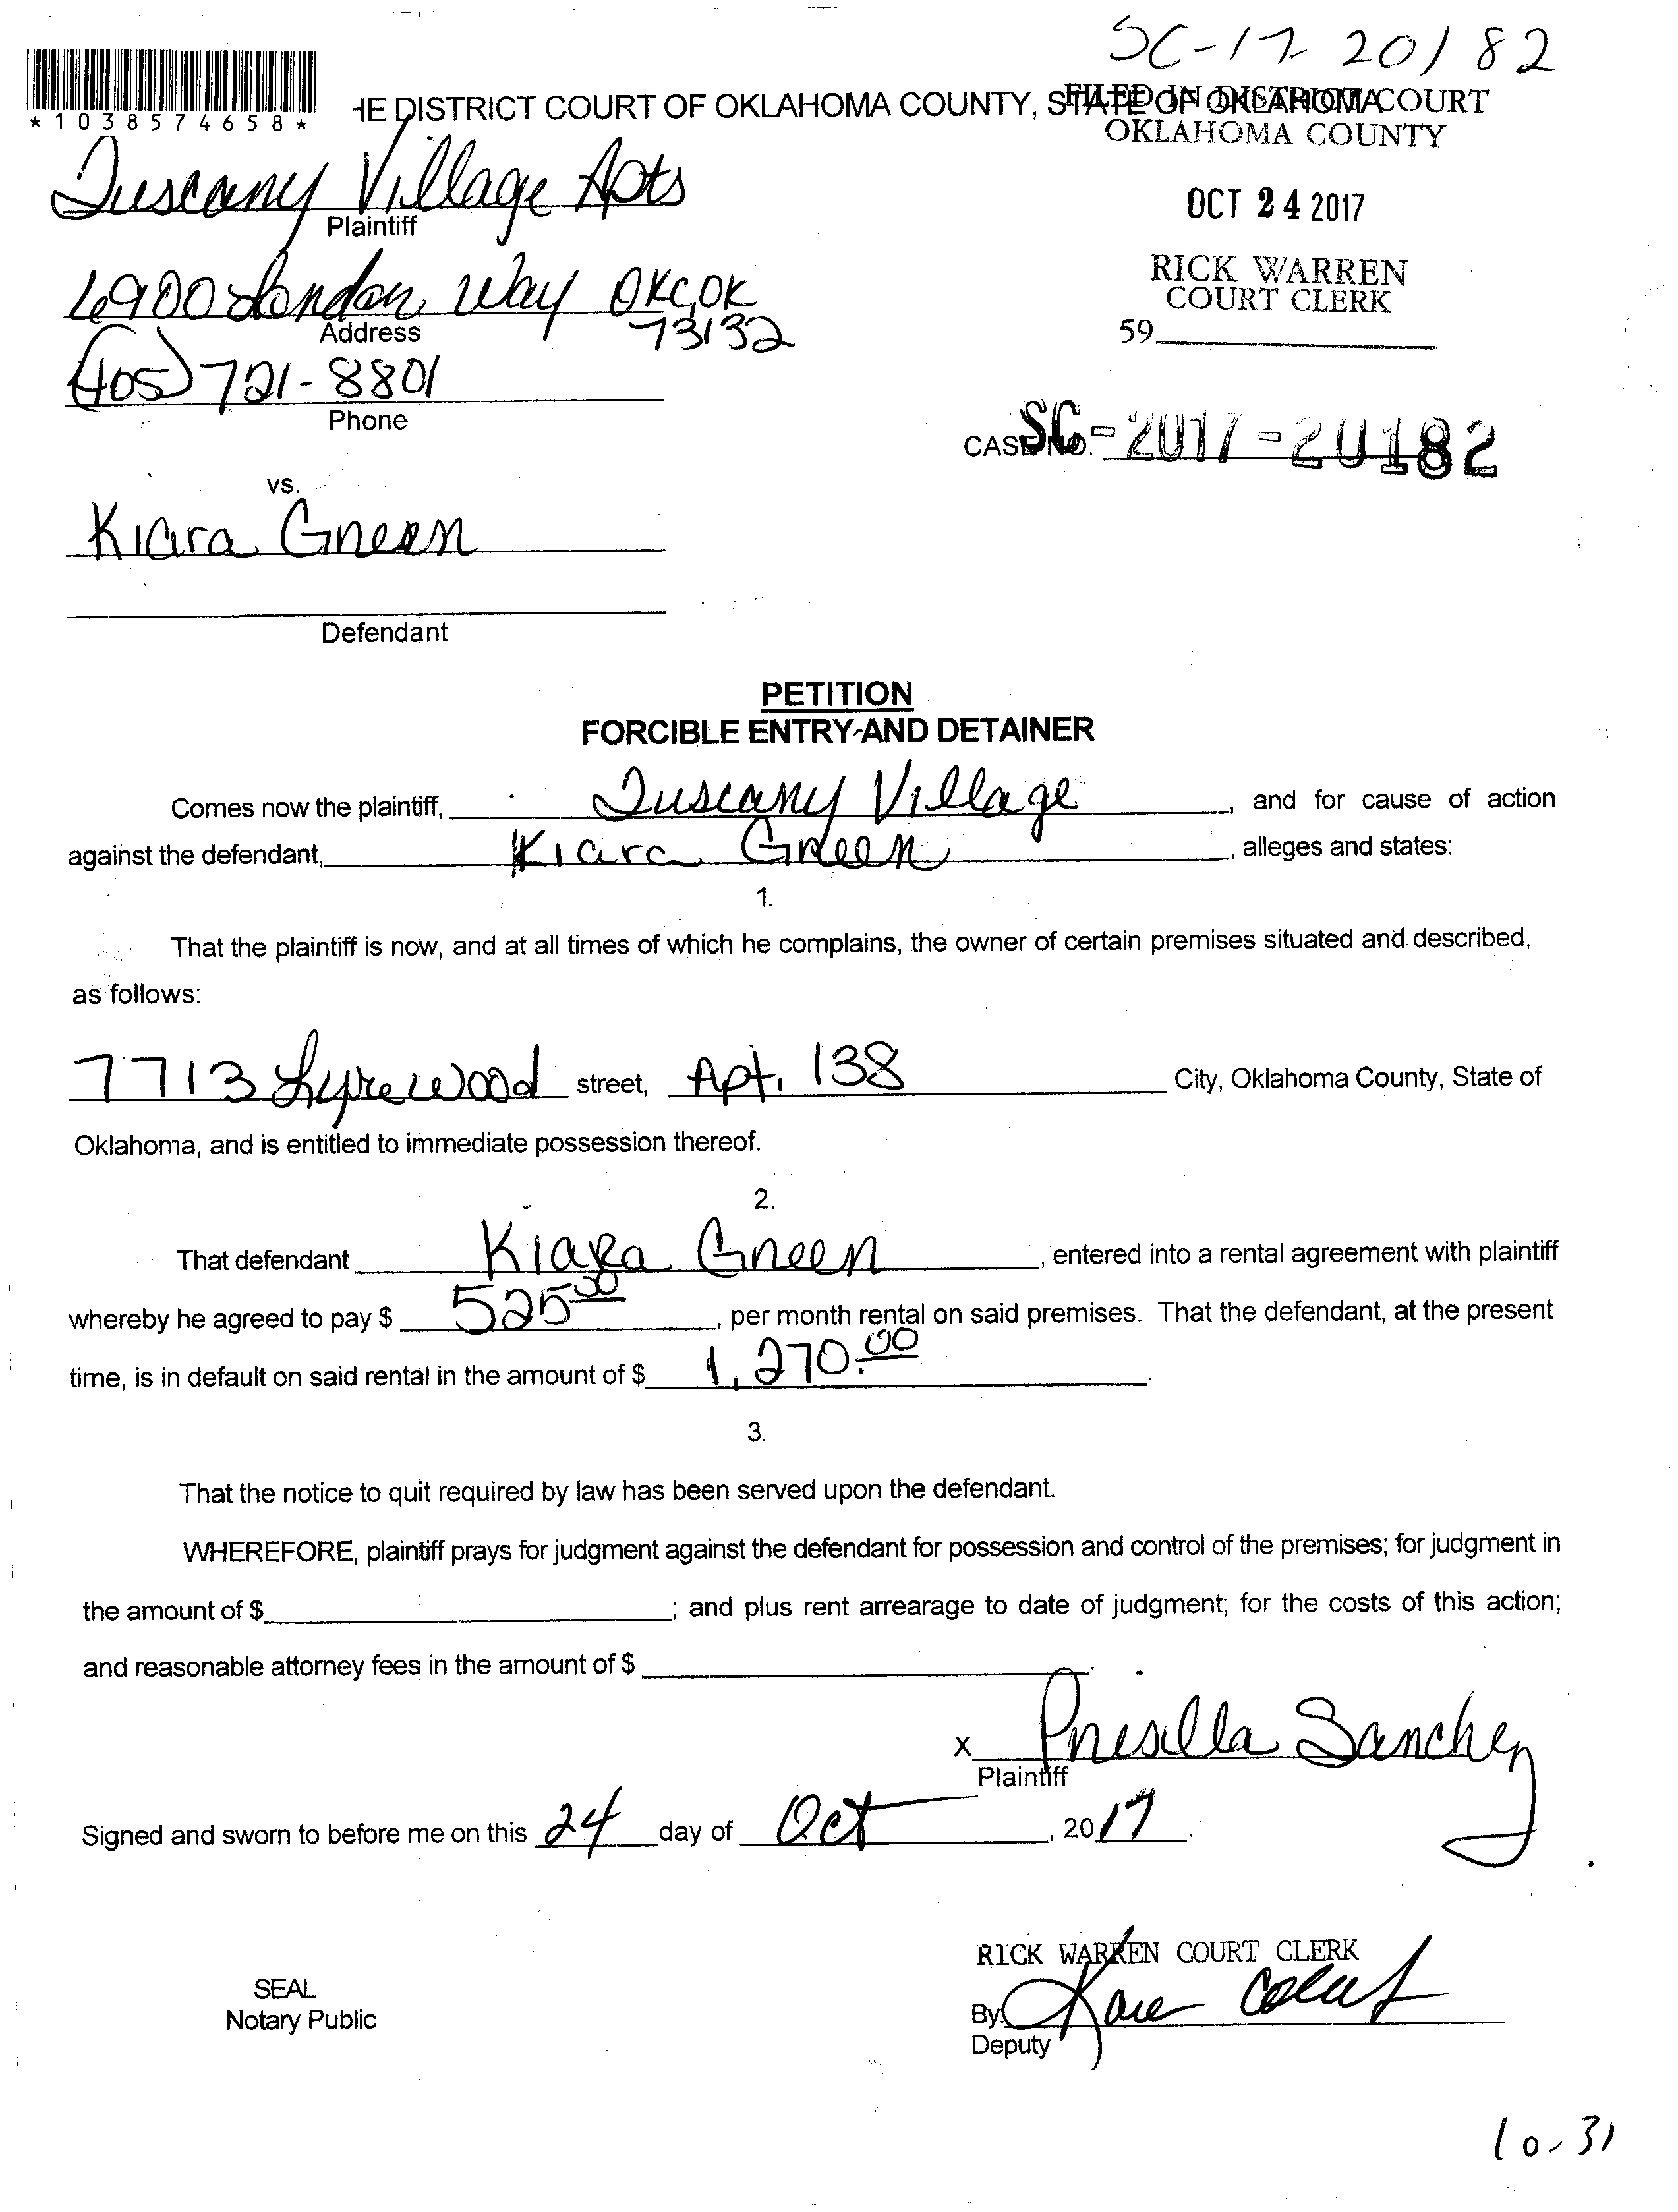 SC-17-20182
*1038574658*
HE DISTRICT COURT OF OKLAHOMA COUNTY, STATE OF OKLAHOMA
FILED IN DISTRICT COURT
OKLAHOMA COUNTY
OCT 24 2017
RICK WARREN
COURT CLERK
59
Tuscany Village Apts
Plaintiff
6900 London Way OKC, OK
73132
Address
(405) 721-8801
Phone
CASE NO. SC-2017-20182
vs.
Kiara Green
Defendant
PETITION
FORCIBLE ENTRY AND DETAINER
Comes now the plaintiff, Tuscany Village, and for cause of action
against the defendant, Kiara Green, alleges and states:
1.
That the plaintiff is now, and at all times of which he complains, the owner of certain premises situated and described,
as follows:
7713 Lyrewood street, Apt. 138 City, Oklahoma County, State of
Oklahoma, and is entitled to immediate possession thereof.
2.
That defendant Kiara Green, entered into a rental agreement with plaintiff
whereby he agreed to pay $ 525 00, per month rental on said premises. That the defendant, at the present
time, is in default on said rental in the amount of $ 1,270.00.
3.
That the notice to quit required by law has been served upon the defendant.
WHEREFORE, plaintiff prays for judgment against the defendant for possession and control of the premises; for judgment in
the amount of $ ; and plus rent arrearage to date of judgment; for the costs of this action;
and reasonable attorney fees in the amount of $ .
x Prisilla Sanchez
Plaintiff
Signed and sworn to before me on this 24 day of Oct, 2017.
RICK WARREN COURT CLERK
SEAL
Notary Public
By
Deputy
10-31